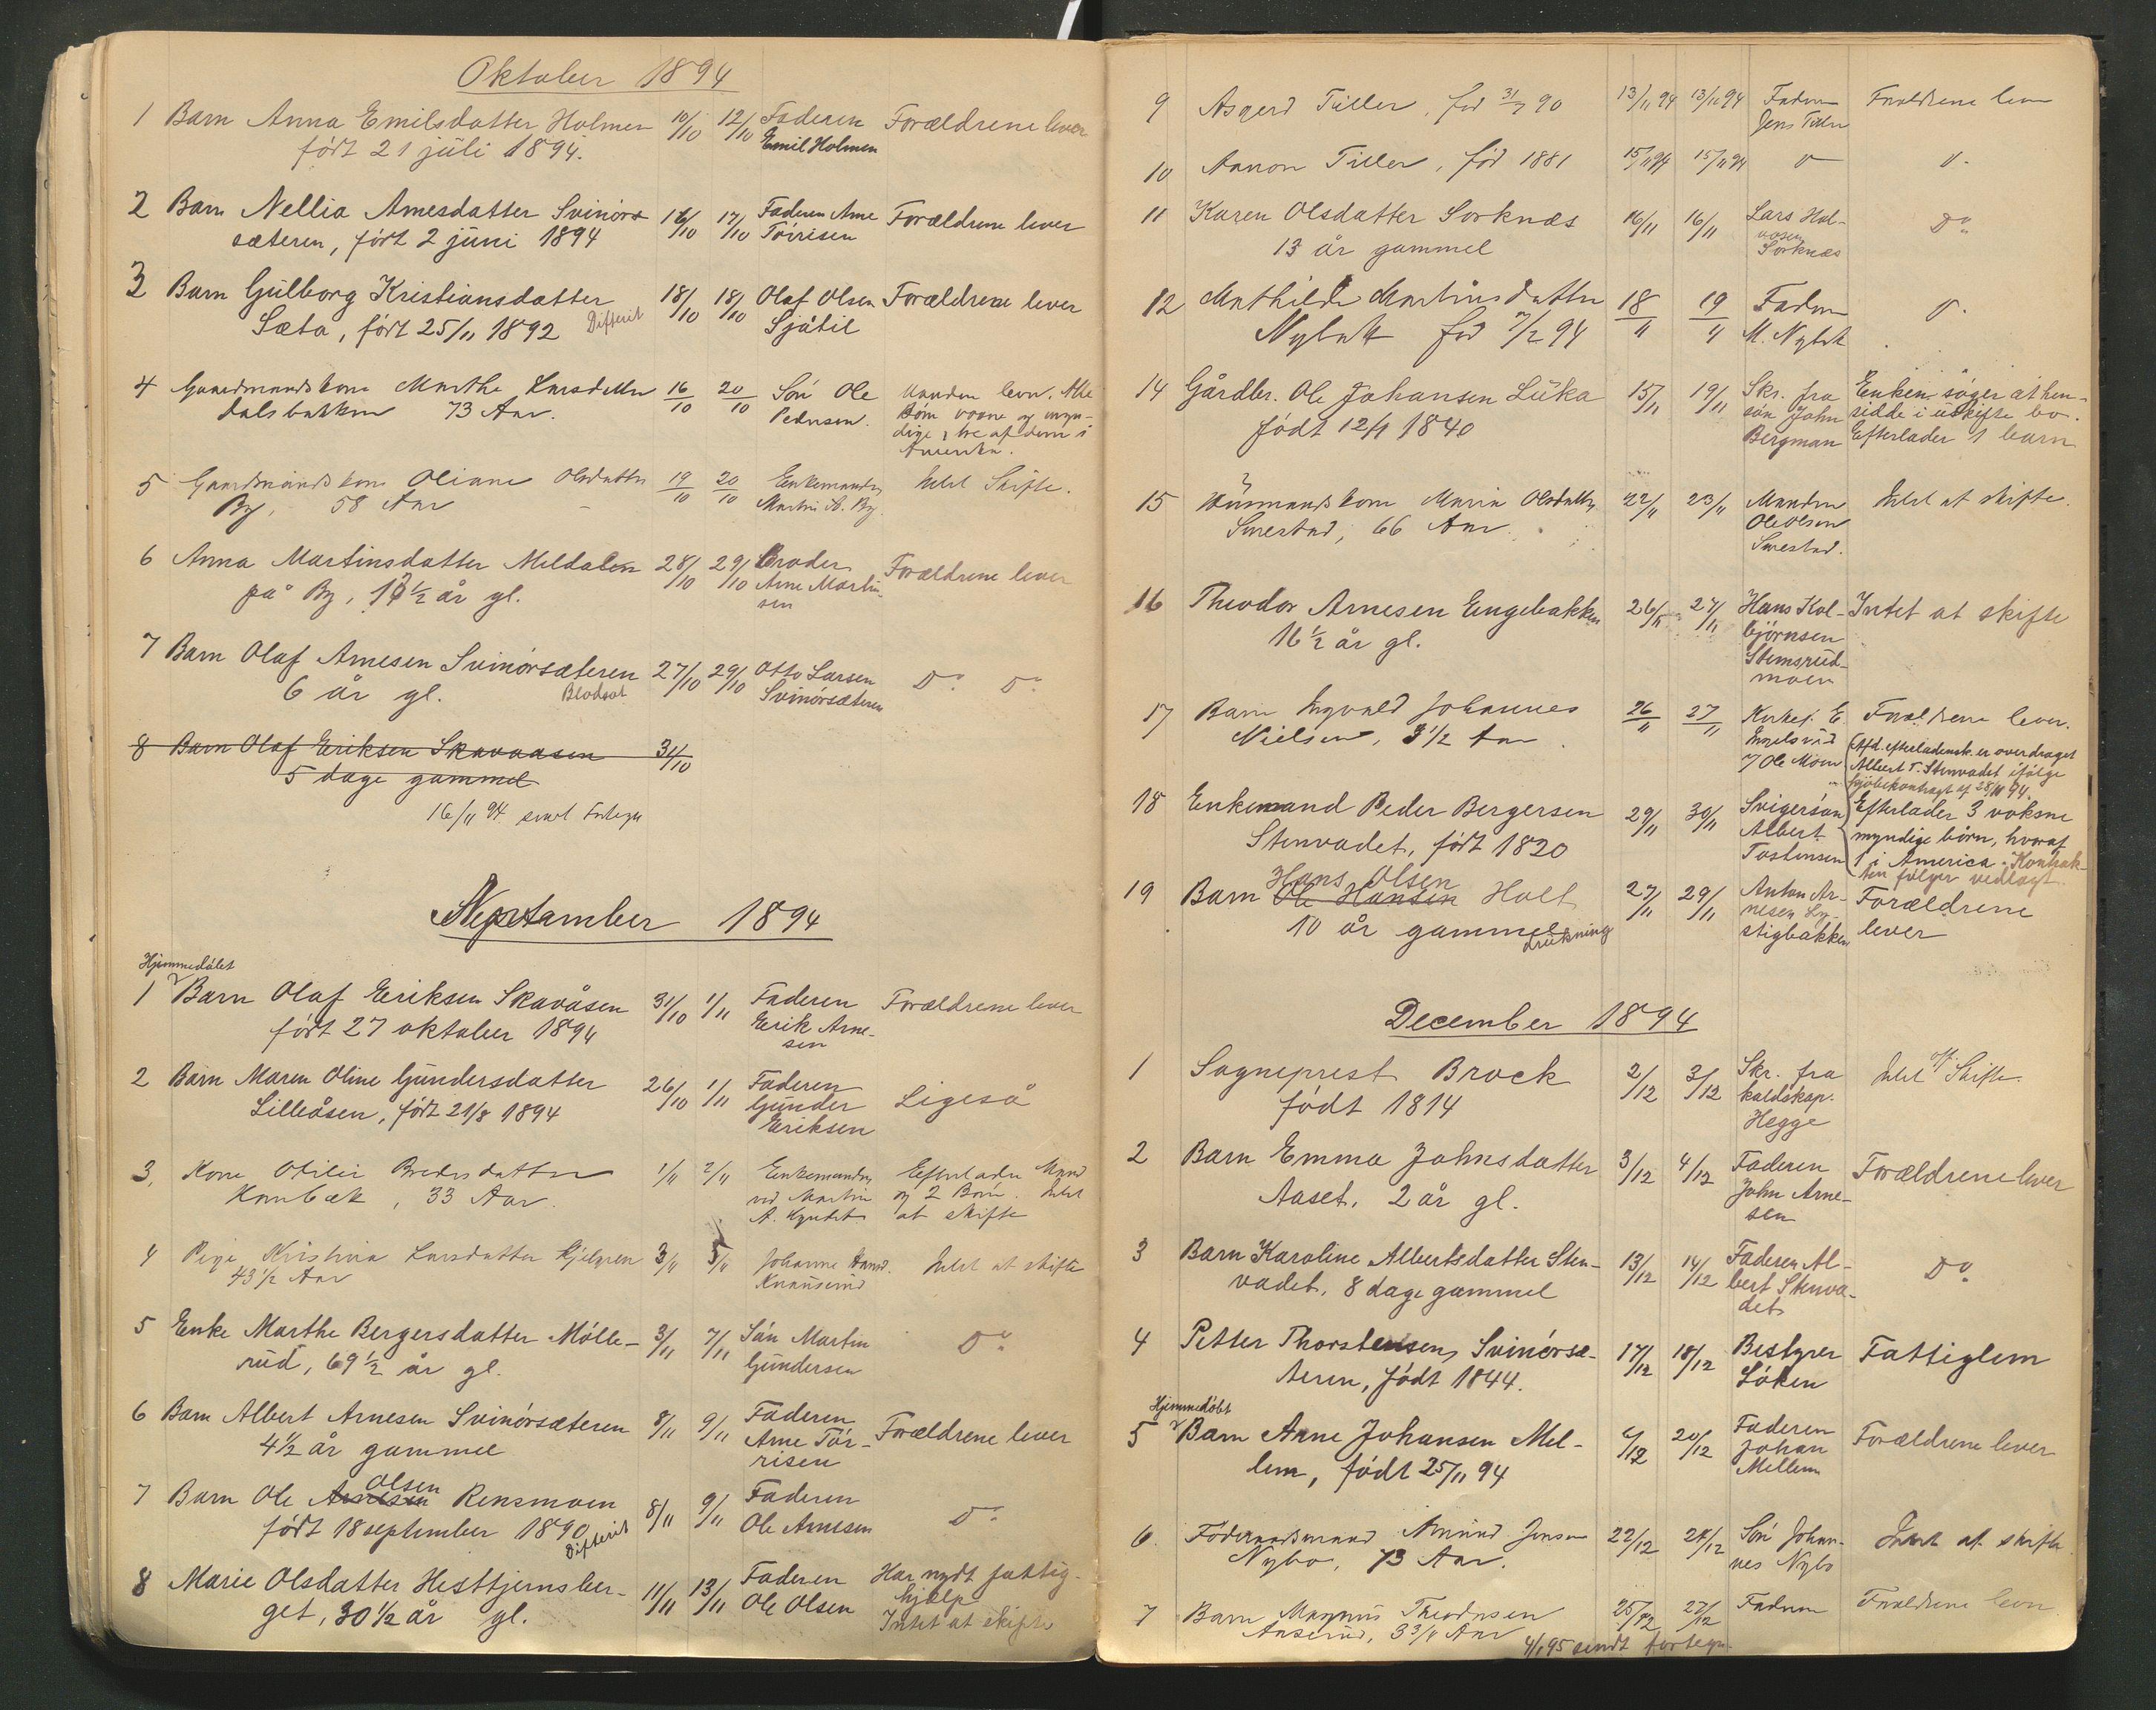 Oktober 1894
1 Barn Anna Emilsdatter Holmen 10/10 12/10 Faderen Forældrene lever
født 21 juli 1894. Emil Holmen
2 Barn Nellia Arnesdatter Svinørs 16/10 17/10 Faderen Arne Forældrene lever
sæteren, født 2 juni 1894 Tørrisen
3 Barn Gulborg Kristiansdatter 18/10 18/10 Olaf Olsen Forældrene lever
Sæta, født 25/11 1892 Difterit Sjåtil
4 Gaardmandskone Marthe Larsdatter 16/10 20/10 Søn Ole Manden lever. Alle
dalsbakken 73 Aar. Pedersen. Børn voxne og myn-
dige, tre af dem i
Amerika.
5 Gaardmandskone Oliane Olsdatter 19/10 20/10 Enkemanden Intet Skifte.
By, 58 Aar Martin A. By
6 Anna Martinsdatter Meldalen 28/10 29/10 Broder Forældrene lever
på By, 17 1/2 år gl. Arne Martin-
sen
7 Barn Olaf Arnesen Svinørsæteren 27/10 29/10 Otto Larsen Do Do
6 år gl. Blodsot Svinørsæteren
8 Barn Olaf Eriksen Skavaasen 31/10
5 dage gammel
16/11 94 sendt Fortegn
November 1894
Hjemmedøbt
1 Barn Olaf Eriksen Skavåsen 31/10 1/11 Faderen Forældrene lever
født 27 oktober 1894 Erik Arne-
sen
2 Barn Maren Oline Gundersdatter 26/10 1/11 Faderen Ligeså
Lilleåsen, født 21/8 1894 Gunder
Eriksen
3, Kone Otilie Bredesdatter 1/11 2/11 Enkemanden Efterlader Mand
Kambæk, 33 Aar. ved Martin og 2 Børn. Intet
A. at skifte
4 Pige Kristina Larsdatter Kjelgren 3/11 5/11 Johanne Intet at skifte
43 1/2 Aar Knauserud
5 Enke Marthe Bergersdatter Mølle- 3/11 7/11 Søn Martin Do
rud, 69 1/2 år gl. Gundersen
6 Barn Albert Arnesen Svinørsæteren 8/11 9/11 Faderen Forældrene lever
4 1/2 år gammel Arne Tør-
risen
7 Barn Ole Arnesen Olsen Rensmoen 8/11 9/11 Faderen Do
født 18 september 1890 Difterit Ole Arnesen
8 Marie Olsdatter Hesttjernsber- 11/11 13/11 Faderen Har nydt fattig-
get, 30 1/2 år gl. Ole Olsen hjælp
Intet at skifte
9 Asgerd Tiller, fød 31/7 90 13/11 94 13/11 94 Faderen Forældrene lever
Jens Tiller
10 Annon Tiller, fød 1881 15/11 94 15/11 94
11 Karen Olsdatter Sorknæs 16/11 16/11 Lars Hal- Do
13 år gammel vosen
Sorknæs
12 Mathilde Martinsdatter 18/11 19/11 Faderen
Nybak fød 7/2 94 M. Nybak
14 Gårdbr. Ole Johansen Luka 15/11 19/11 Skr. fra Enken søger at hen-
født 12/1 1840 søn John sidde i uskifte bo.
Bergman Efterlader 1 barn
15 Husmandskone Maria Olsdatter 22/11 23/11 Manden Intet at skifte.
Smestad, 66 Aar. Ole Olsen
Smestad.
16 Theodor Arnesen Engebakken 26/11 27/11 Hans Kol- Intet at skifte
16 1/2 år gl. bjørnsen
Stemsrud-
moen
17 Barn Ingvald Johannes 26/11 27/11 Kirkes. E. Forældrene lever.
Nielsen, 3 1/2 Aar. Engelsrud
7 Ole Moen
Afd. efterladensk. er overdraget
Albert T. Stenvadet ifølge
kjøbekontragt af 28/10 94.
18 Enkemand Peder Bergersen 29/11 30/11 Svigersøn Efterlader 3 voksne
Stenvadet, født 1820 Albert myndige børn, hvoraf
Tostensen 1 i America. Kontrak-
ten følger vedlagt.
Hans Olsen
19 Barn Ole Hansen Holt 27/11 29/11 Anton Ar- Forældrene
10 år gammel drukning nesen Ly- lever
stigbakken
December 1894
1 Sogneprest Brock 2/12 3/12 Skr. fra Intet off. Skifte.
født 1814 kaldskap.
Hegge
2 Barn Emma Johnsdatter 3/12 4/12 Faderen Forældrene lever
Aaset, 2 år gl. John Arne-
sen
3 Barn Karoline Albertsdatter Sten- 13/12 14/12 Faderen Al- Do
vadet, 8 dage gammel bert Stenva-
det
4 Petter Thorstensen Svinørsæ- 17/12 18/12 Bestyrer Fattiglem
teren, født 1844. Løken
Hjemmedøbt
5 Barn Arne Johansen Mel- 6/12 20/12 Faderen Forældrene lever
lem, født 25/11 94 Johan
Mellem
6. Føderaadsmand Amund Jensen 22/12 24/12 Søn Johan- Intet at skifte.
Nybo, 73 Aar. nes Nybo
7 Barn Magnus Theodorsen 25/12 27/12 Faderen Forældrene lever
Aaserud, 3 3/4 Aar
4/1 95 sendt fortegn.